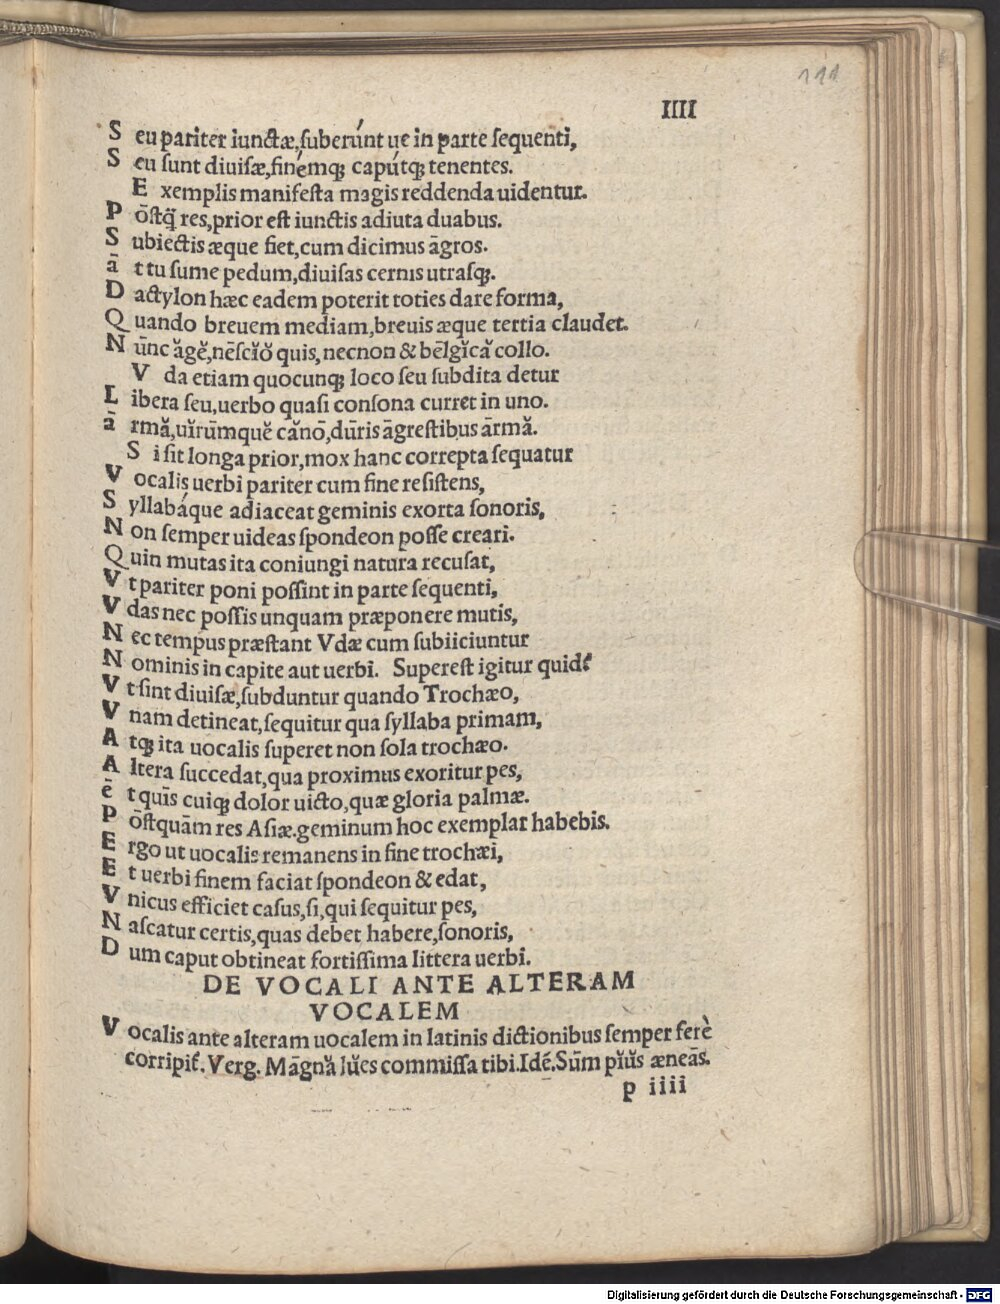 111
IIII
S eu pariter iunctæ, ſuberúnt ue in parte ſequenti,
S eu ſunt diuiſæ, finémqꝫ capútqꝫ tenentes.
E xemplis manifeſta magis reddenda uidentur.
P ōſtq̄ res, prior eſt iunctis adiuta duabus.
S ubiectis æque fiet, cum dicimus āgros.
ā t tu ſume pedum, diuiſas cernis utraſqꝫ.
D actylon hæc eadem poterit toties dare forma,
Q uando breuem mediam, breuis æque tertia claudet.
N ūnc ăgĕ, nēſcĭŏ quis, necnon & bēlgĭcă collo.
V da etiam quocunqꝫ loco ſeu ſubdita detur
L ibera ſeu, uerbo quaſi conſona curret in uno.
ā rmă, uĭrūmquĕ cănō, dūris āgreſtibus ārmă.
S i ſit longa prior, mox hanc correpta ſequatur
V ocalis uerbi pariter cum fine reſiſtens,
S yllabáque adiaceat geminis exorta ſonoris,
N on ſemper uideas ſpondeon poſſe creari.
Q uin mutas ita coniungi natura recuſat,
V t pariter poni poſſint in parte ſequenti,
V das nec poſſis unquam præponere mutis,
N ec tempus præſtant Vdæ cum ſubiiciuntur
N ominis in capite aut uerbi. Supereſt igitur quidē
V t ſint diuiſæ, ſubduntur quando Trochæo,
V nam detineat, ſequitur qua ſyllaba primam,
A tqꝫ ita uocalis ſuperet non ſola trochæo.
A ltera ſuccedat, qua proximus exoritur pes,
ē t quīs cuiqꝫ dolor uicto, quæ gloria palmæ.
P ōſtquām res Aſiæ. geminum hoc exemplar habebis.
E rgo ut uocalis remanens in fine trochæi,
E t uerbi finem faciat ſpondeon & edat,
V nicus efficiet caſus, ſi, qui ſequitur pes,
N aſcatur certis, quas debet habere, ſonoris,
D um caput obtineat fortiſſima littera uerbi.
DE VOCALI ANTE ALTERAM
VOCALEM
V ocalis ante alteram uocalem in latinis dictionibus ſemper ferè
corripit̃. Verg. Māgnă lŭes commiſſa tibi. Idē. Sūm pĭŭs æneās.
p iiii
Digitalisierung gefördert durch die Deutsche Forschungsgemeinschaft - DFG